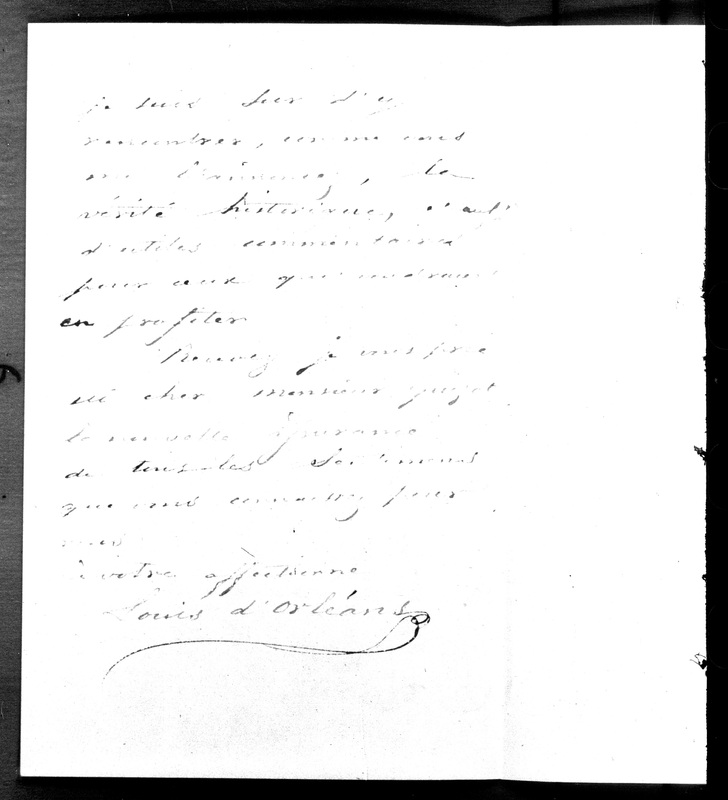 je suis sur d'y
rencontrer, comme vous
me l'annoncez, la
vérité historique, &
d'utiles commentaires
pour ceux qui voudraient
en profiter
Recevez je vous prie
cher monsieur guizot
la nouvelle
de tous les sentimens
que vous connaissez pour
vous
votre affectionné
Louis d'Orléans